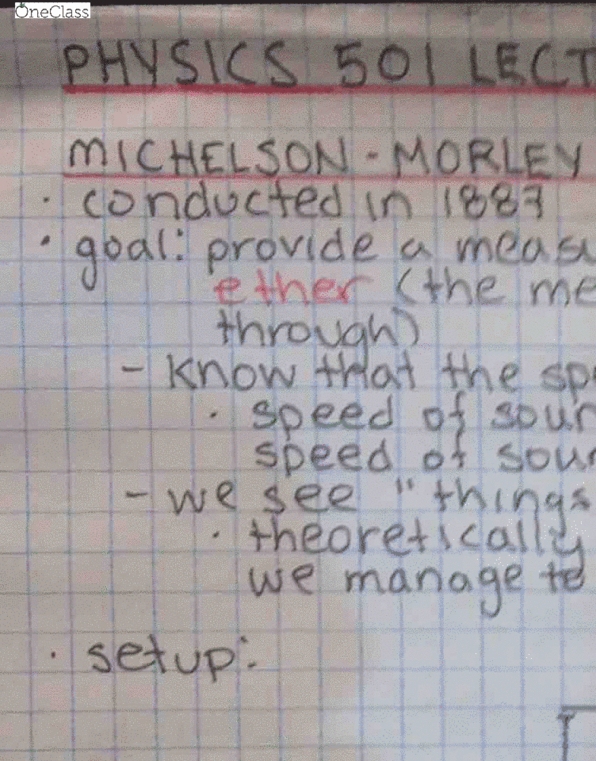 OneClass
PHYSICS 501 LECT
MICHELSON - MORLEY
· conducted in 1887
· goal: provide a measu
ether (the me
through)
- know that the spe
· speed of soun
speed of soun
- we see "things
· theoretically
we manage to
· setup: